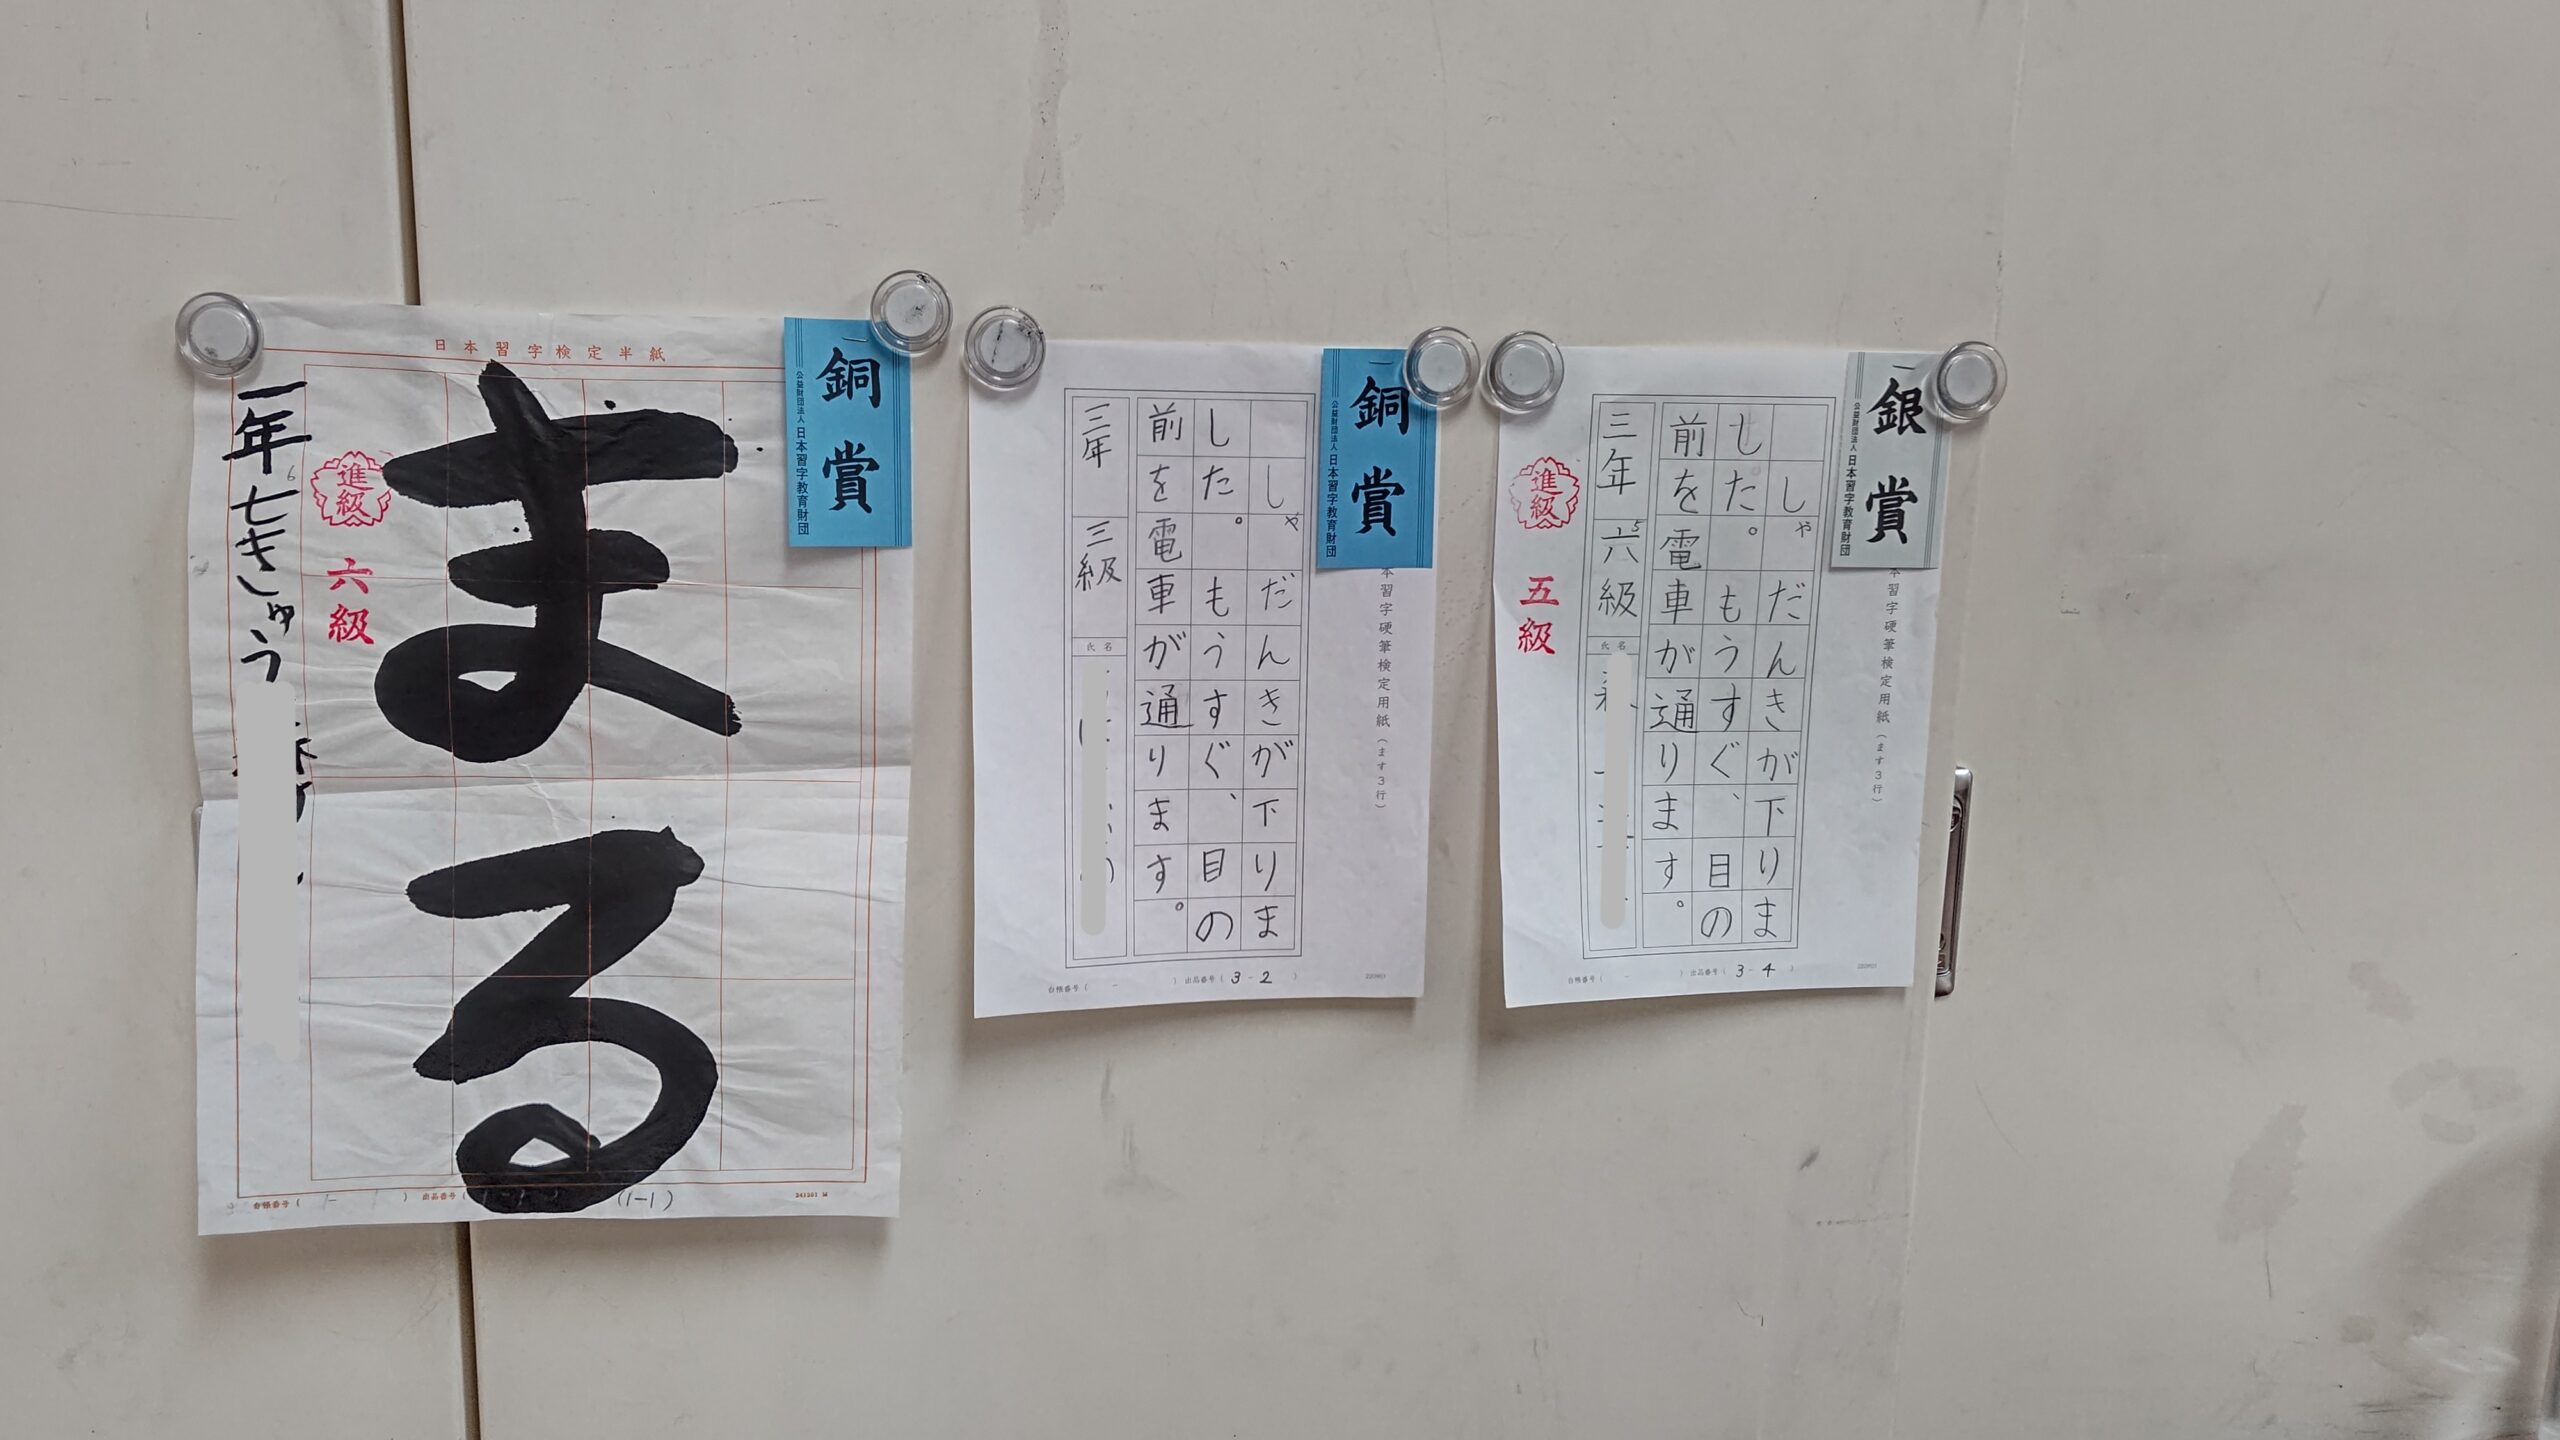 日本習字検定半紙
銅賞
公益財団法人 日本習字教育財団
まる
進級
六級
一年七きゅう
6
台帳番号（ － ） 出品番号（ (1-1)
241201 M
銅賞
公益財団法人 日本習字教育財団
本習字硬筆検定用紙（ます3行）
しゃだんきが下りま
した。もうすぐ、目の
前を電車が通ります。
三年
三級
氏名
台帳番号（ － ） 出品番号（ 3-2 ）
220901
銀賞
公益財団法人 日本習字教育財団
本習字硬筆検定用紙（ます3行）
しゃだんきが下りま
した。もうすぐ、目の
前を電車が通ります。
三年
六級
5
氏名
進級
五級
台帳番号（ － ） 出品番号（ 3-4 ）
220901